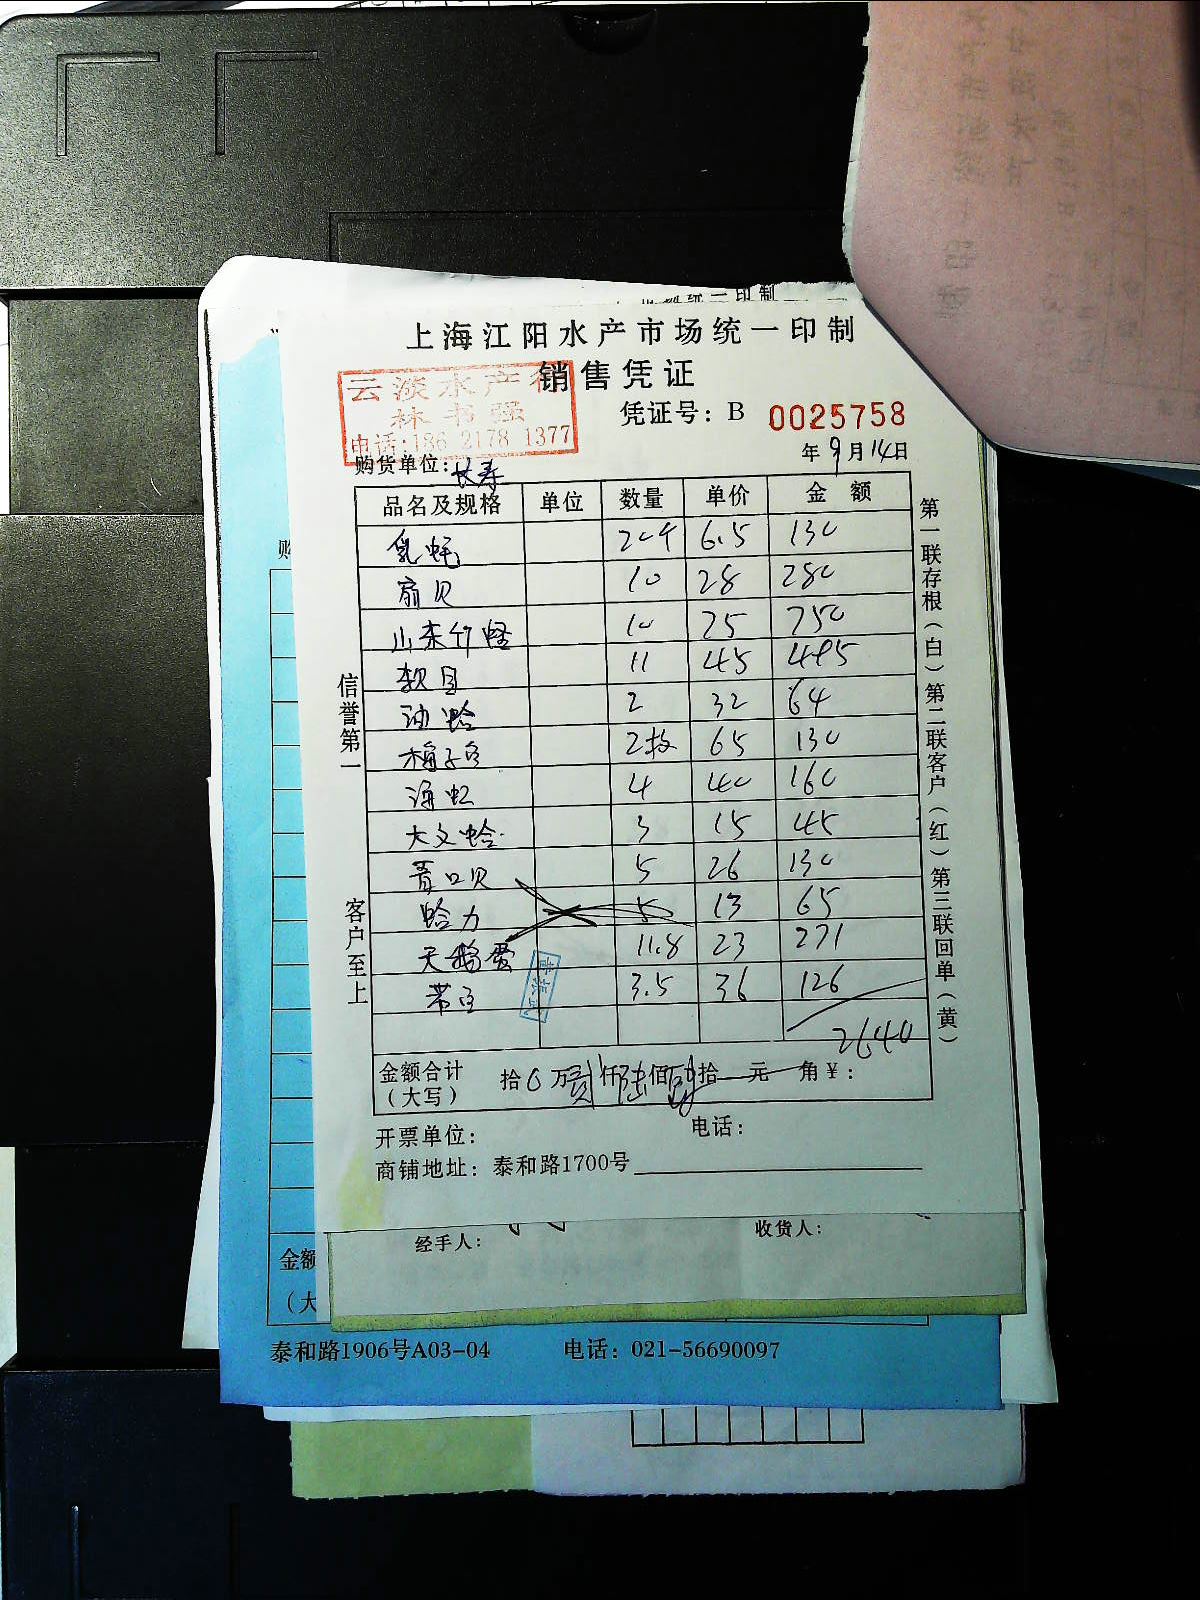 上海江阳水产市场统一印制
销售凭证
云淡水产行
林书强
电话:186 2178 1377
凭证号：B 0025758
年9月14日
购货单位：长寿
品名及规格 单位 数量 单价 金额
乳蚝 20个 6.5 130
扇贝 10 28 280
山东竹蛏 10 25 250
11 45 495
油蛤 2 32 64
梅子 2板 65 130
海虹 4 40 160
大文蛤 3 15 45
青口贝 5 26 130
蛤力 5 13 65
天鹅蛋 11.8 23 271
3.5 36 126
2640
金额合计（大写） 拾 万贰仟陆佰 拾 元 角￥：
开票单位：
电话：
商铺地址：泰和路1700号
信誉第一
客户至上
第一联存根（白）第二联客户（红）第三联回单（黄）
经手人：
收货人：
金额
（大
泰和路1906号A03-04 电话：021-56690097